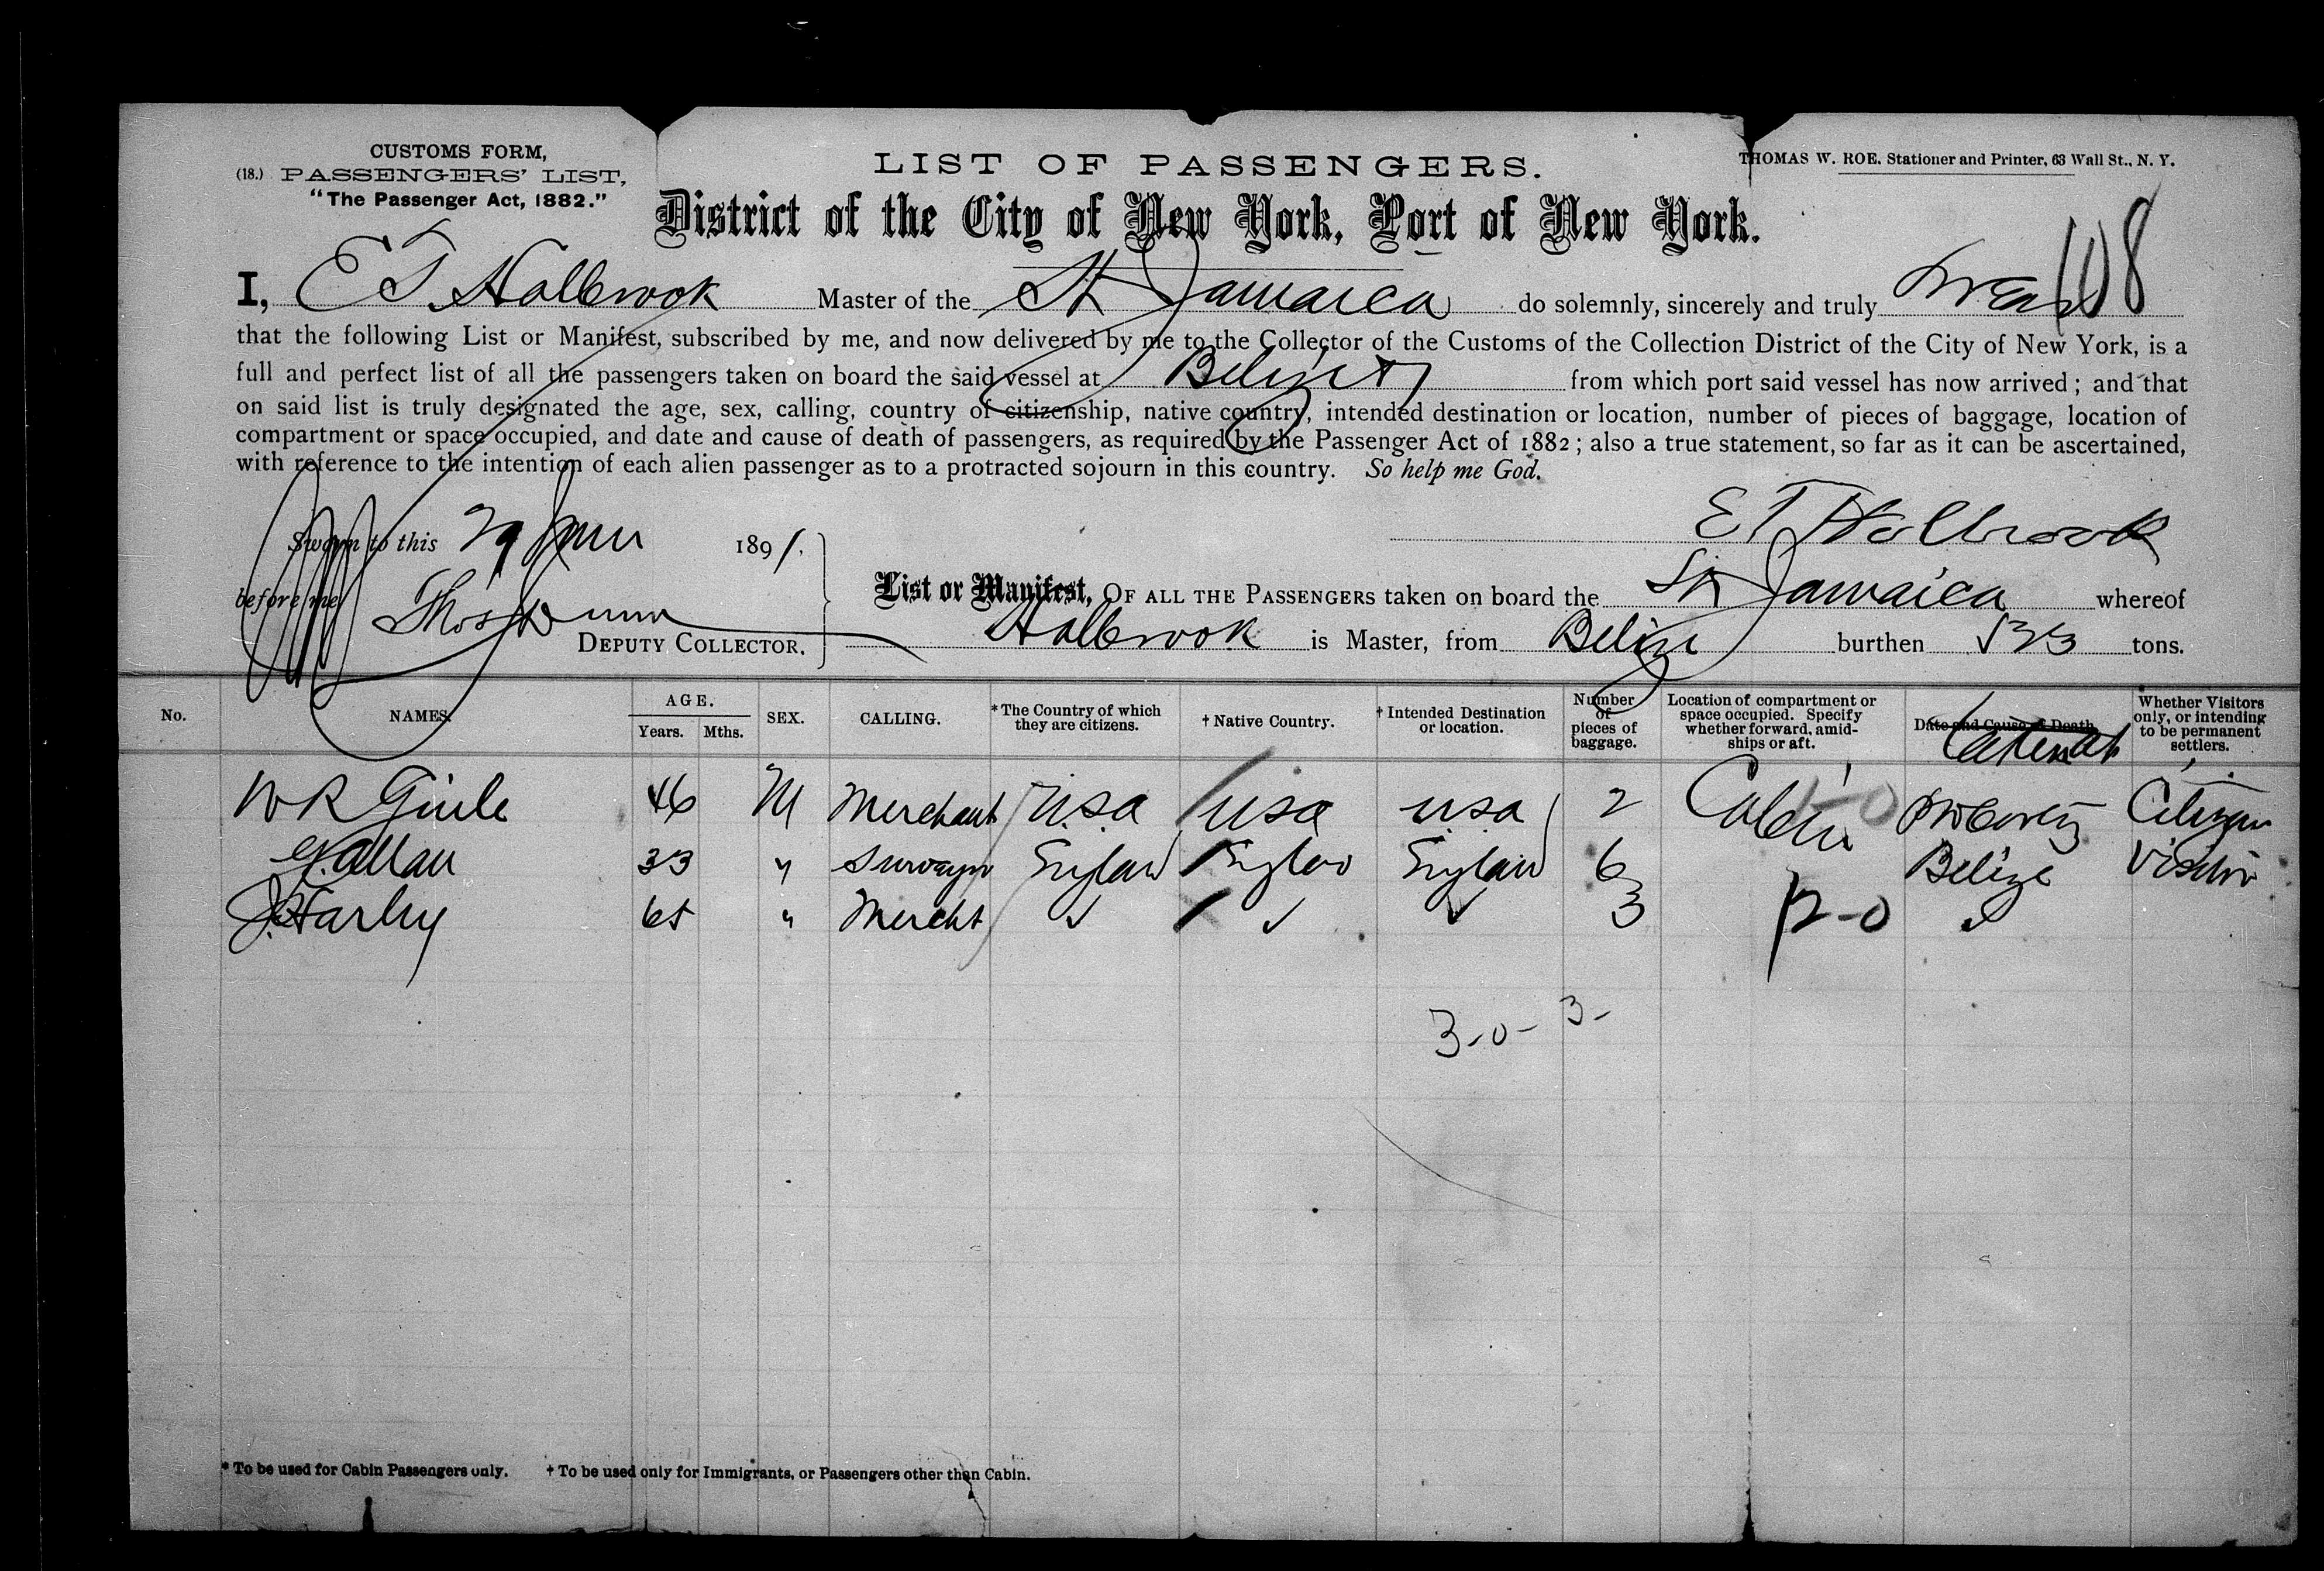 CUSTOMS FORM,
(18.) PASSENGERS' LIST,
"The Passenger Act, 1882."
LIST OF PASSENGERS.
THOMAS W. ROE. Stationer and Printer, 63 Wall St., N. Y.
District of the City of New York, Port of New York.
108
I, E T. Holbrook Master of the St Jamaica do solemnly, sincerely and truly swear
that the following List or Manifest, subscribed by me, and now delivered by me to the Collector of the Customs of the Collection District of the City of New York, is a
full and perfect list of all the passengers taken on board the said vessel at Belize from which port said vessel has now arrived; and that
on said list is truly designated the age, sex, calling, country of citizenship, native country, intended destination or location, number of pieces of baggage, location of
compartment or space occupied, and date and cause of death of passengers, as required by the Passenger Act of 1882; also a true statement, so far as it can be ascertained,
with reference to the intention of each alien passenger as to a protracted sojourn in this country. So help me God.
E T Holbrook
Sworn to this 29 1891.
before me Thos Dunn
DEPUTY COLLECTOR.
List or Manifest, OF ALL THE PASSENGERS taken on board the St Jamaica whereof
Holbrook is Master, from Belize burthen 533 tons.
No. NAMES. AGE. Years. Mths. SEX. CALLING. *The Country of which they are citizens. † Native Country. † Intended Destination or location. Number of pieces of baggage. Location of compartment or space occupied. Specify whether forward, amidships or aft. Date and Cause of Death. Whether Visitors only, or intending to be permanent settlers.
W R 46 M Merchant U.S.a U.S.a U.S.a 2 Cabin 1-0 Citizen
Allan 33 " Surveyor England England England 6 Belize Visitor
J. Harley 65 " Mercht ✓ ✓ ✓ 3 2-0 ✓
3-0- 3-
* To be used for Cabin Passengers only. † To be used only for Immigrants, or Passengers other than Cabin.